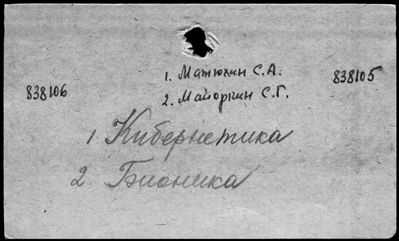 1. Матюхин С.А. 838105
838106 2. Майоргин С.Г.
1 Кибернетика
2. Бионика